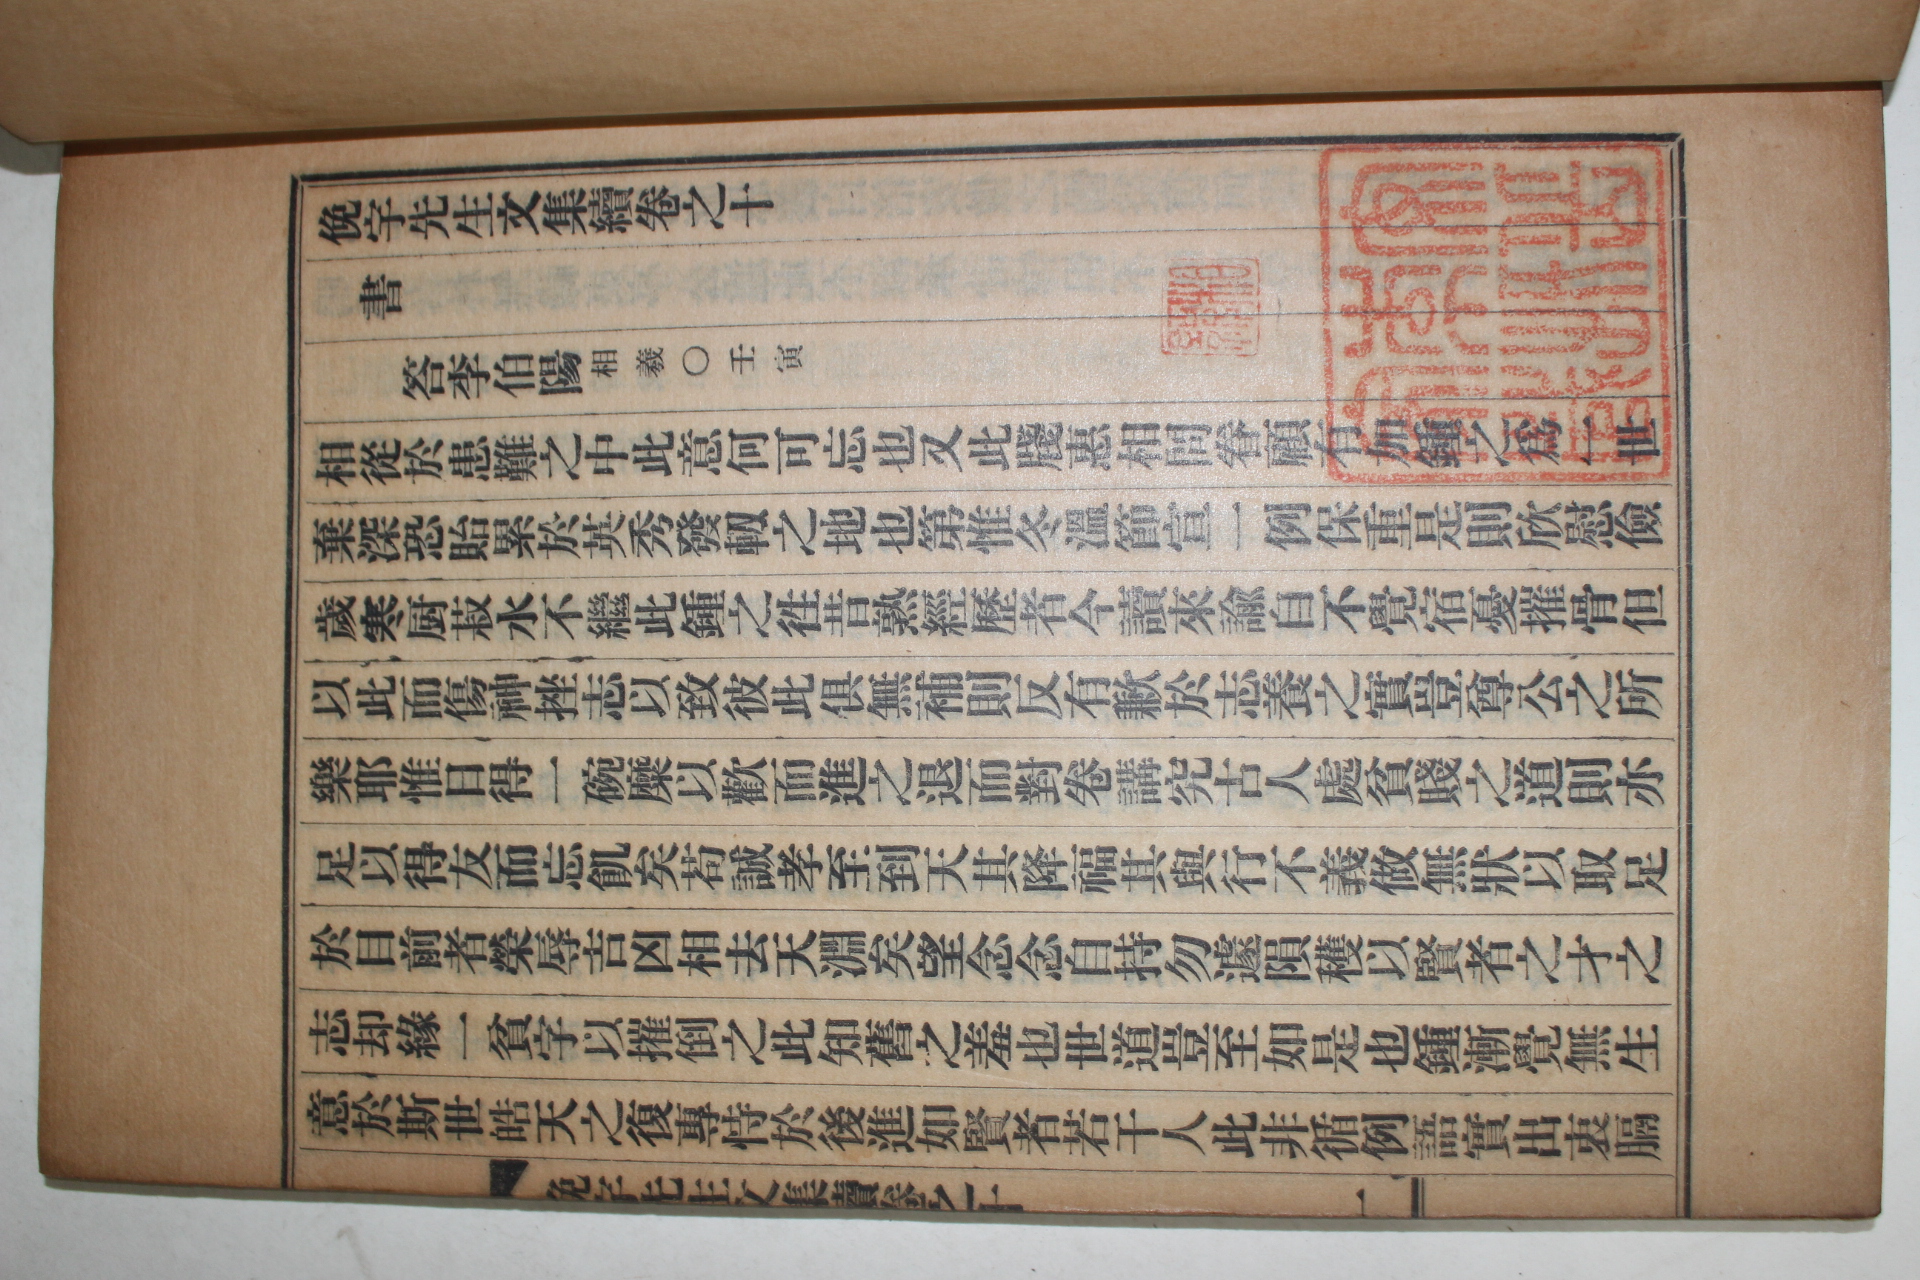 俛宇先生文集續卷之十
書
答李伯陽相羲○壬寅
相從於患難之中此意何可忘也又此牋惠相問眷顧有加鍾之爲一世
棄深恐貽累於英秀發軔之地也第惟冬溫節宣一例保重是則欣慰儉
歲寒厨菽水不繼此鍾之徃昔熟經歷者今讀來諭自不覺宿憂摧骨但
以此而傷神挫志以致彼此俱無補則反有歉於志養之實豈尊公之所
樂耶惟日得一碗糜以歡而進之退而對卷講究古人處貧賤之道則亦
足以得友而忘飢矣苟誠孝至到天其降福其與行不義做無狀以取足
於目前者榮辱吉凶相去天淵矣望念念自持勿遽隕穫以賢者之才之
志却緣一貧字以摧倒之此知舊之羞也世道豈至如是也鍾漸覺無生
意於斯世皓天之復專恃於後進如賢者若干人此非循例語實出衷膈
俛宇先生文集續卷之十
一